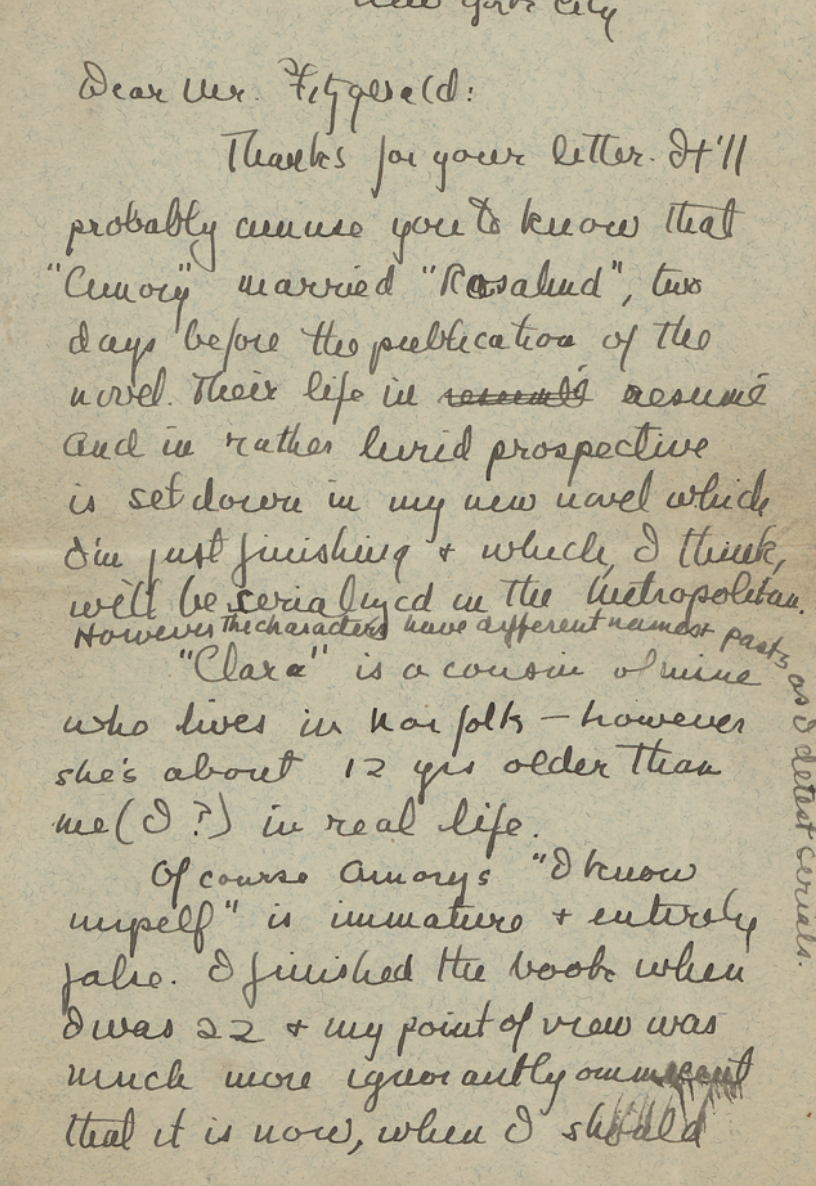 New York City
Dear Mr. Fitzgerald:
Thanks for your letter. It'll
probably amuse you to know that
"Amory" married "Rosalind", two
days before the publication of the
novel. Their life in resumé resumé
and in rather lurid prospective
is set down in my new novel which
I'm just finishing + which, I think,
will be serialized in the Metropolitan.
However the characters have different names + pasts as I detest serials.
"Clara" is a cousin of mine
who lives in Norfolk — however
she's about 12 yrs older than
me (I?) in real life.
Of course Amorys "I know
myself" is immature + entirely
false. I finished the book when
I was 22 + my point of view was
much more ignorantly omniscent
that it is now, when I should